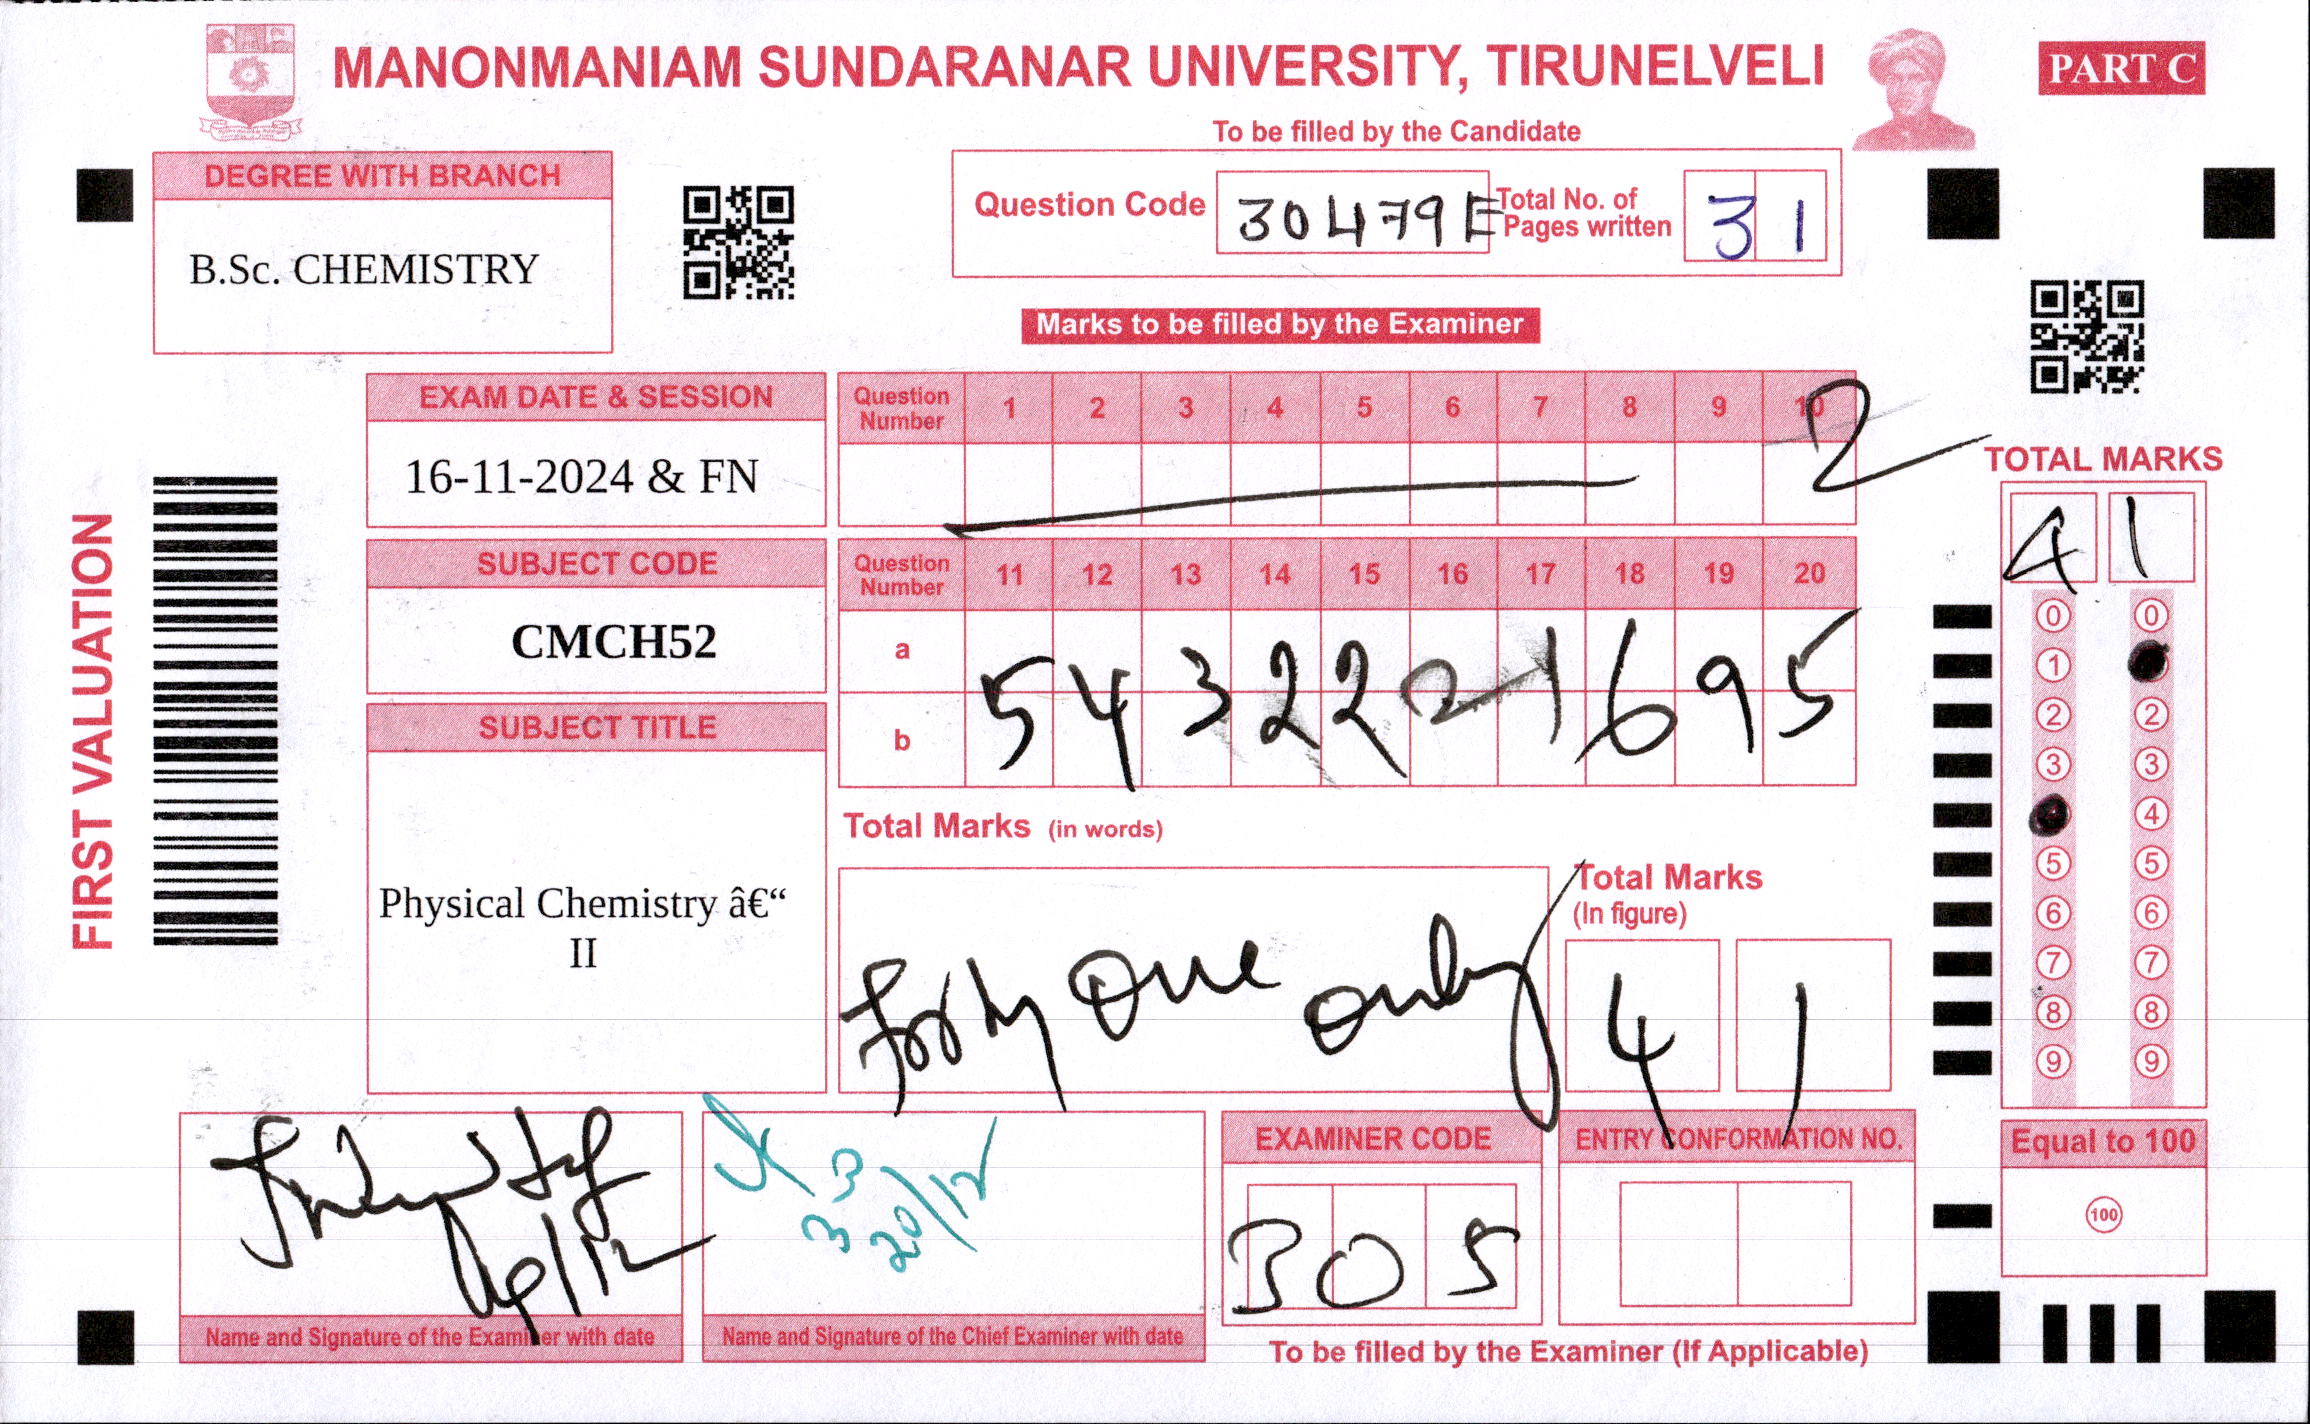 MANONMANIAM SUNDARANAR UNIVERSITY, TIRUNELVELI
PART C
To be filled by the Candidate
DEGREE WITH BRANCH
B.Sc. CHEMISTRY
Question Code 30479E
Total No. of Pages written 31
Marks to be filled by the Examiner
EXAM DATE & SESSION
16-11-2024 & FN
SUBJECT CODE
CMCH52
SUBJECT TITLE
Physical Chemistry â€“
II
FIRST VALUATION
Question Number 1 2 3 4 5 6 7 8 9 10
2
Question Number 11 12 13 14 15 16 17 18 19 20
a
b
5 4 3 2 2 2 1 6 9 5
Total Marks (in words)
Forty One only
Total Marks
(In figure)
4 1
TOTAL MARKS
4 1
0 0
1
2 2
3 3
4
5 5
6 6
7 7
8 8
9 9
Equal to 100
100
Name and Signature of the Examiner with date
33
20/12
Name and Signature of the Chief Examiner with date
EXAMINER CODE
305
ENTRY CONFORMATION NO.
To be filled by the Examiner (If Applicable)